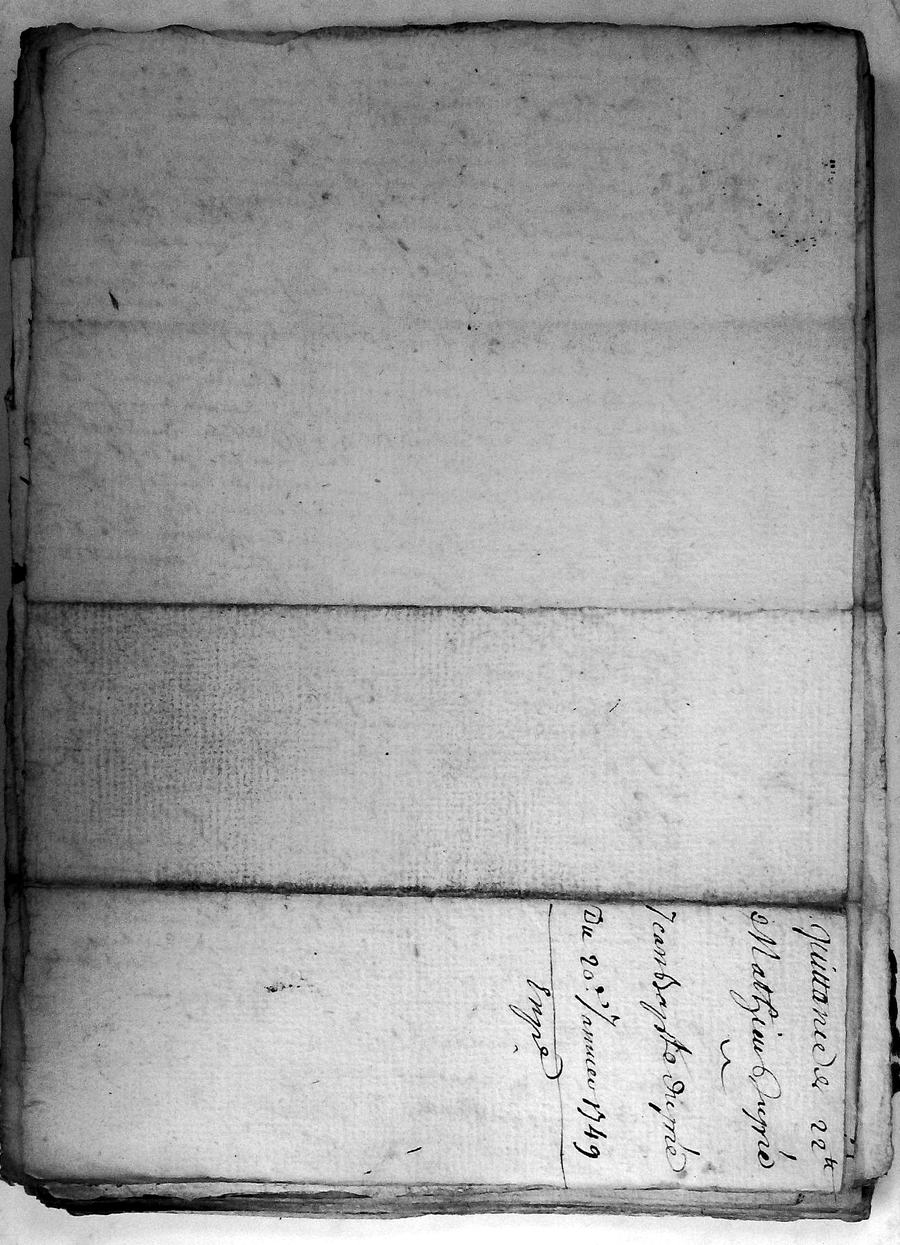 Quittance de 22
Mathieu Dupré
à
Jean bapte dupré
Du 20e Janvier 1749